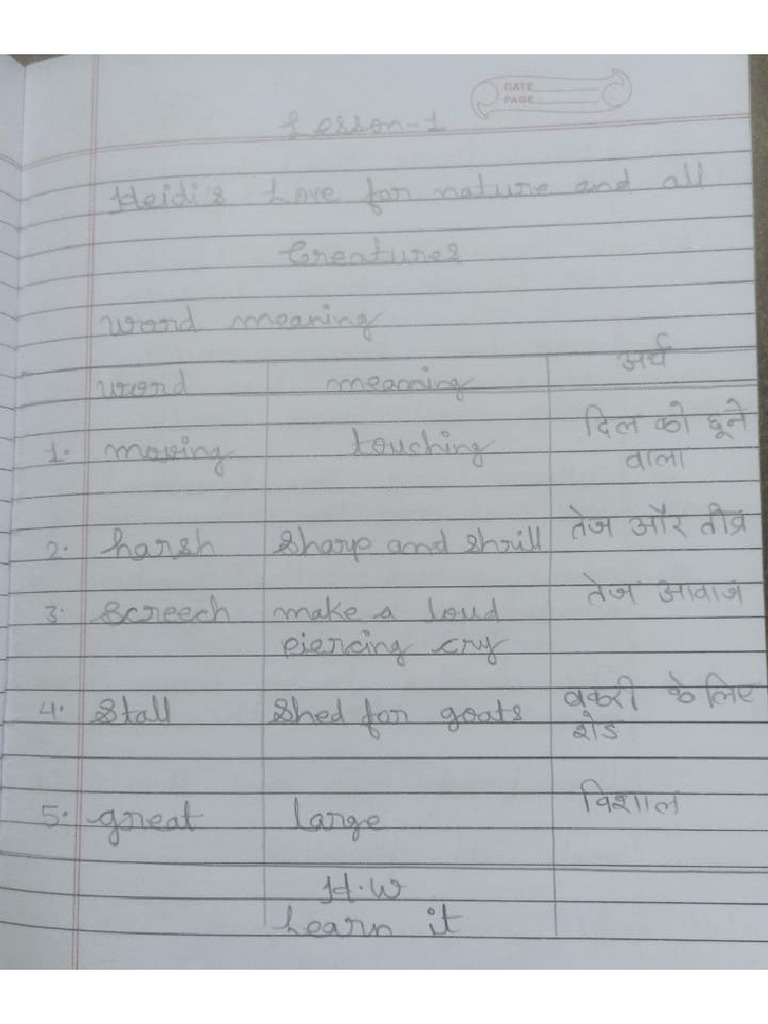 DATE
PAGE
Lesson-1
Heidi's Love for nature and all
Creatures
word meaning
word meaning अर्थ
1. moving touching दिल को छूने
वाला
2. harsh sharp and shrill तेज और तीव्र
3. screech make a loud तेज आवाज
piercing cry
4. stall shed for goats बकरी के लिए
शेड
5. great large विशाल
H.W
Learn it